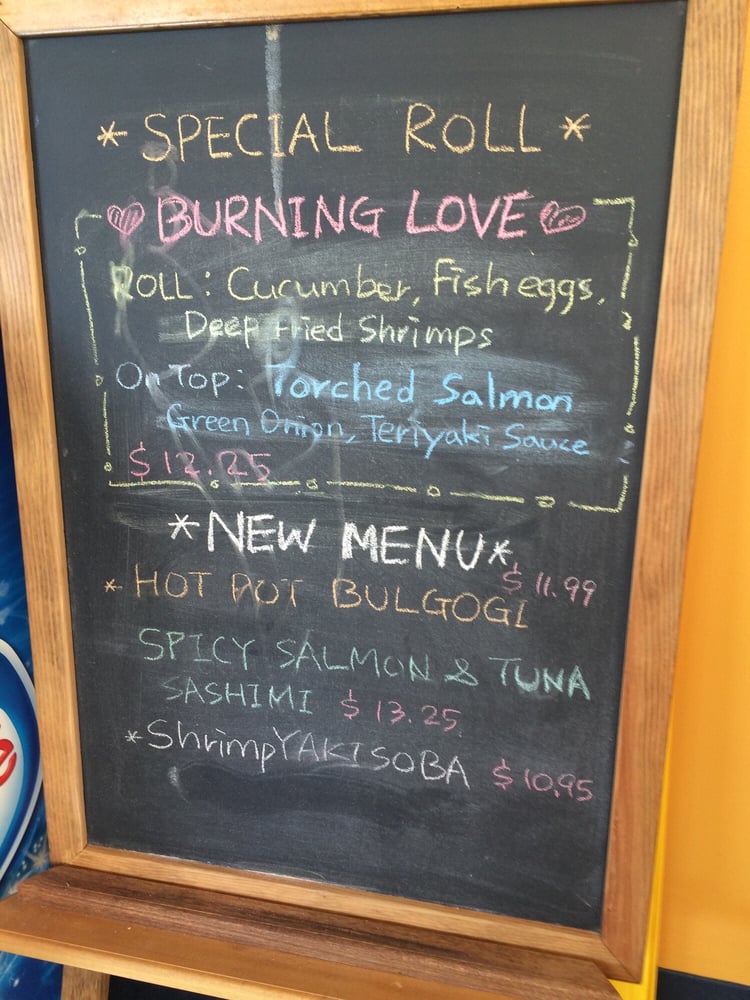 * SPECIAL ROLL *
BURNING LOVE
ROLL: Cucumber, Fish eggs,
Deep Fried Shrimps
On Top: Torched Salmon
Green Onion, Teriyaki Sauce
$12.25
*NEW MENU*
* HOT POT BULGOGI $11.99
SPICY SALMON & TUNA
SASHIMI $13.25
*Shrimp YAKISOBA $10.95